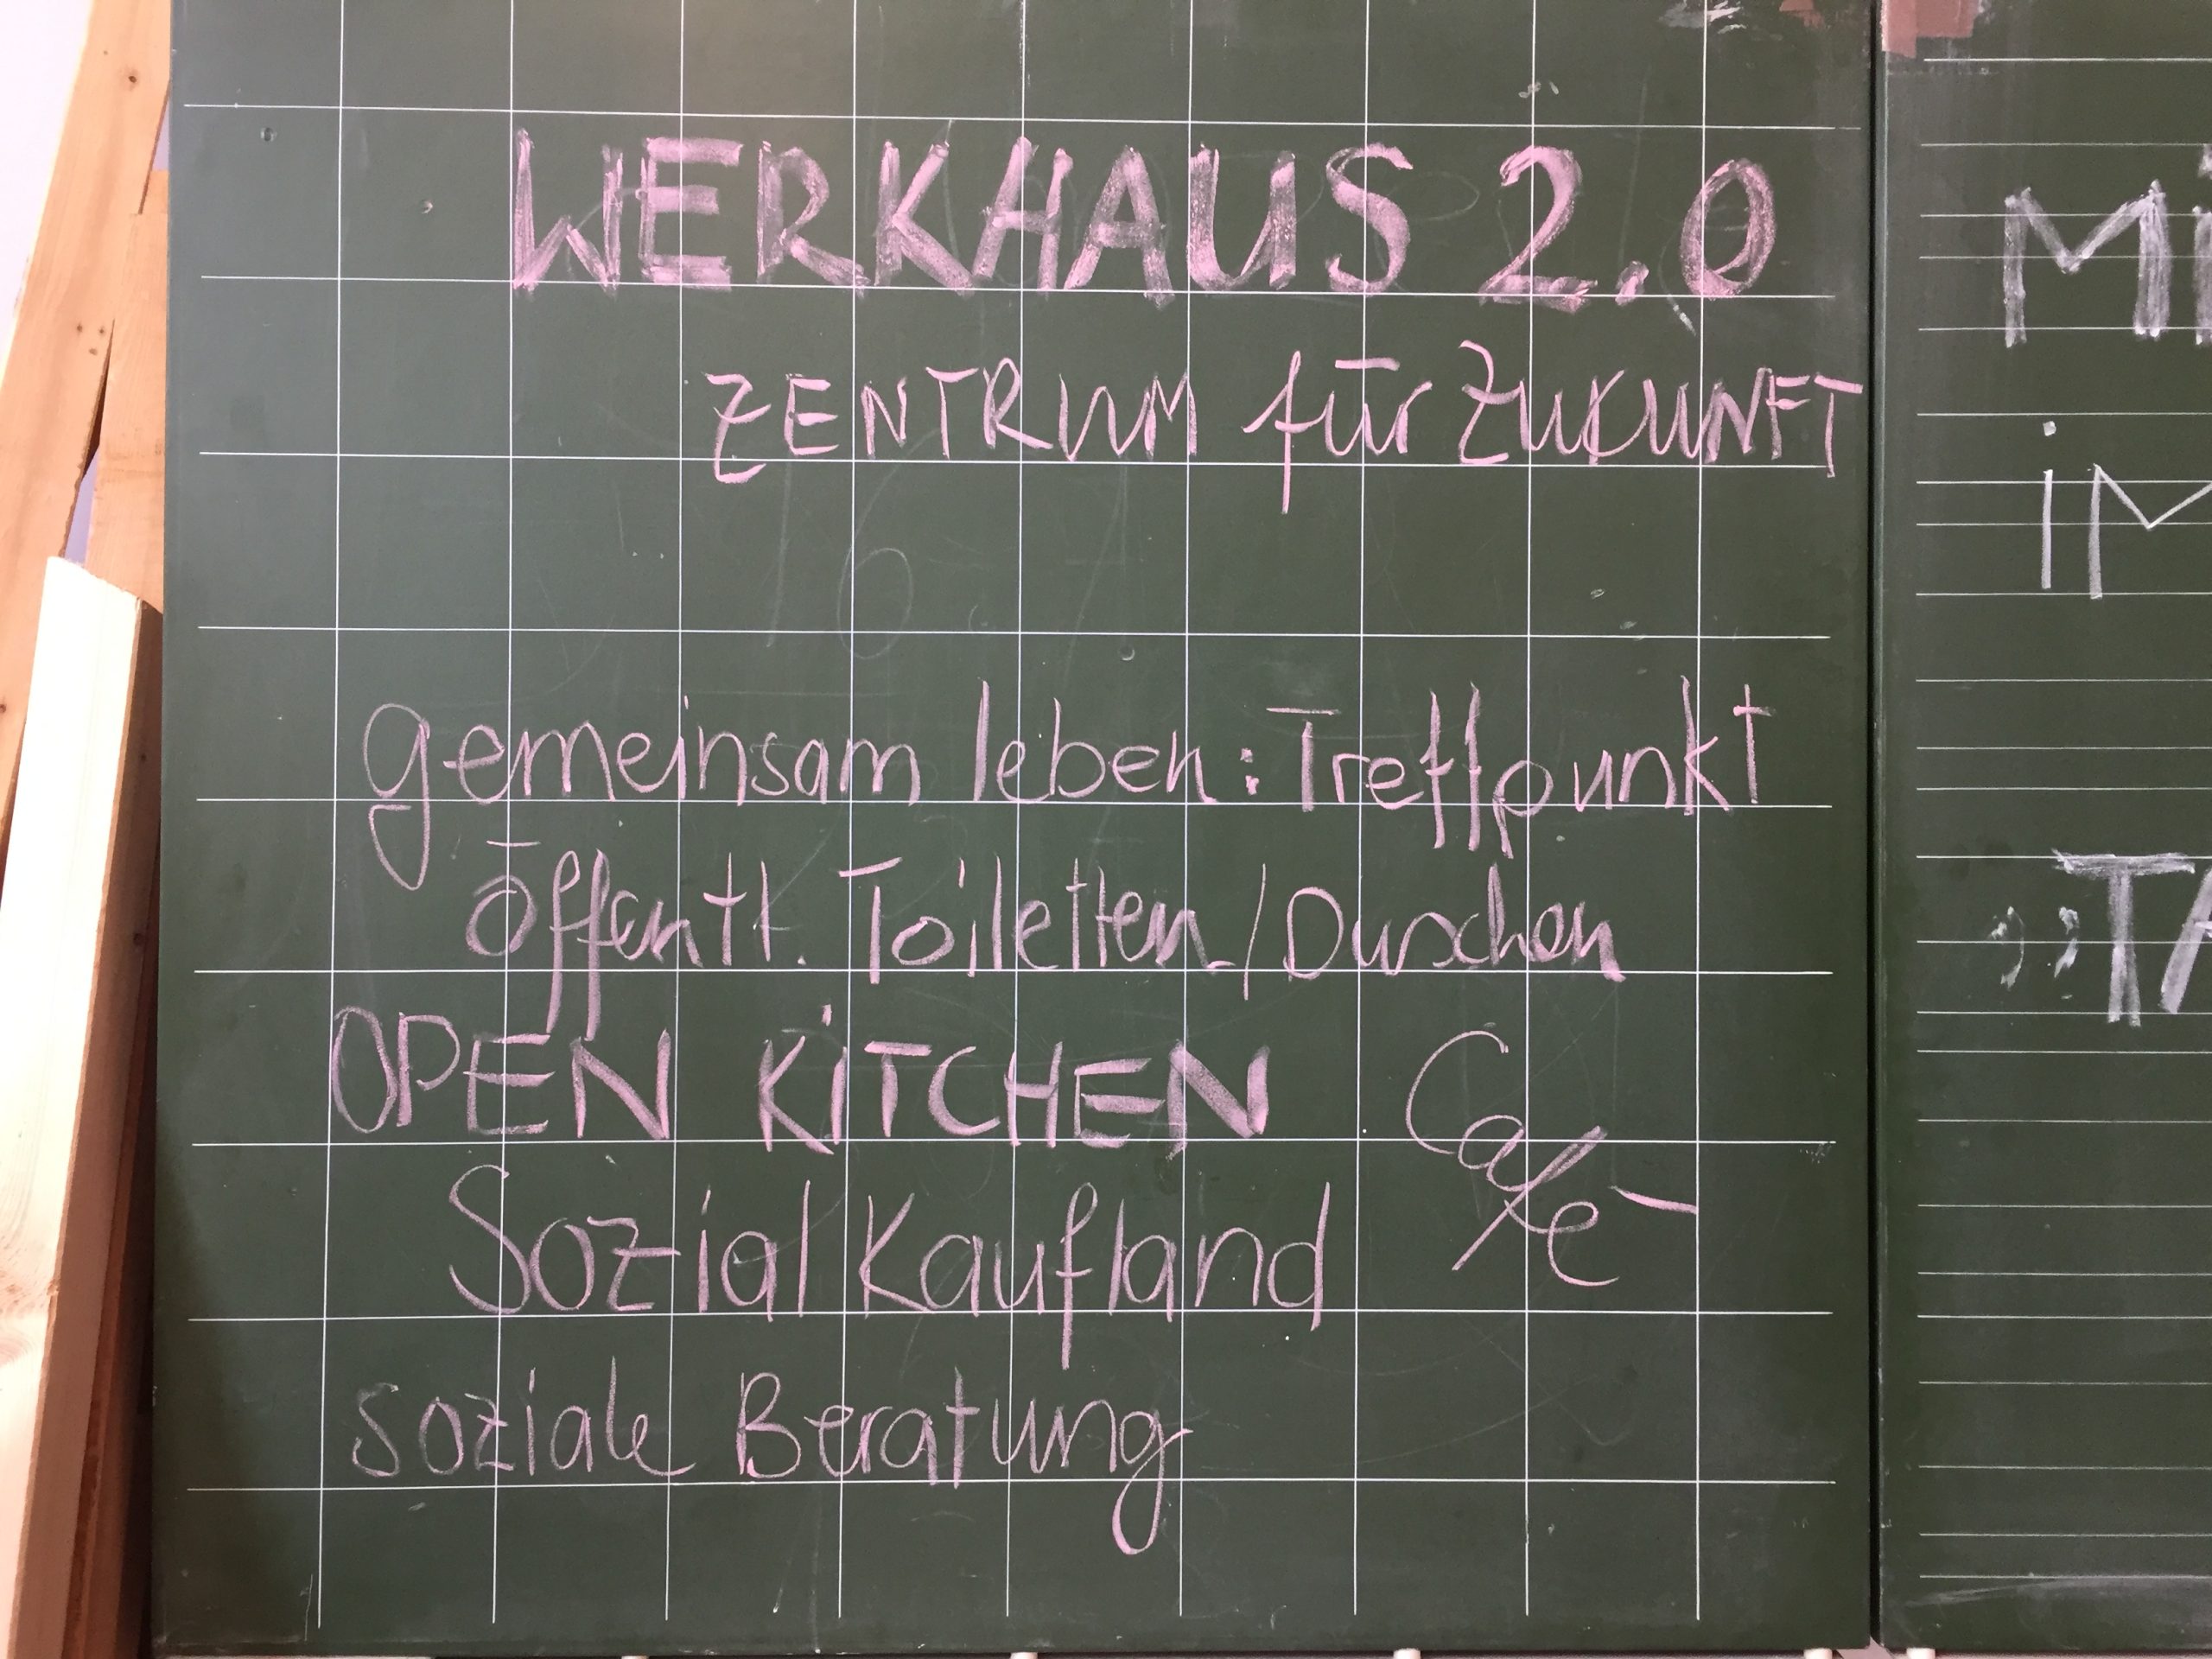 WERKHAUS 2.0
ZENTRUM für ZUKUNFT
gemeinsam leben: Treffpunkt
öffentl. Toiletten/Duschen
OPEN KiTCHEN Café
Sozial Kaufland
soziale Beratung
Mi
iM
„TA